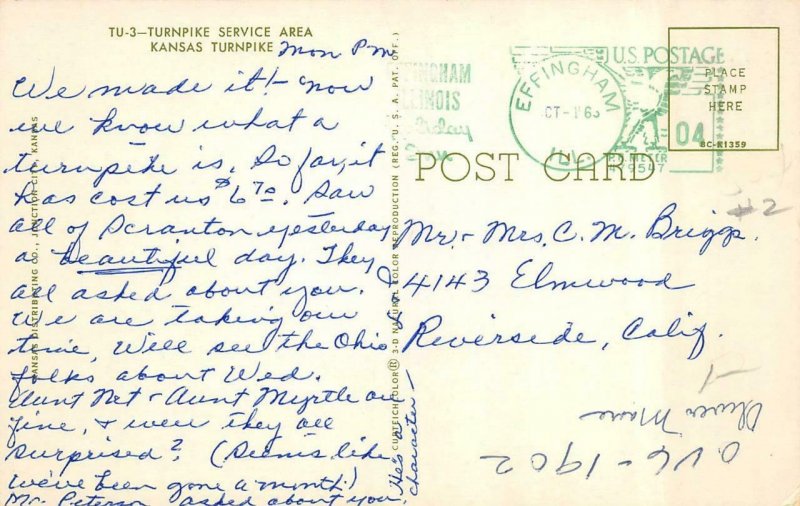 TU-3—TURNPIKE SERVICE AREA
KANSAS TURNPIKE
Mon P.m
We made it! - now
we know what a
turnpike is. So far, it
has cost us $6.70. Saw
all of Scranton yesterday
a beautiful day. They
all asked about you. &
We are taking our
time, Will see the Ohio
folks about Wed.
Aunt Net & Aunt Myrtle are
fine, & were they all
surprised? (Seems like
we've been gone a month!)
Mr. Peterson asked about you,
He's a
character-
KANSAS DISTRIBUTING CO., JUNCTION CITY, KANSAS
CURTEICHCOLOR® 3-D NATURAL COLOR REPRODUCTION (REG. U. S. A. PAT. OFF.)
EFFINGHAM
ILLINOIS
EFFINGHAM
OCT-1'63
ILL.
U.S. POSTAGE
04
P.B. METER
PLACE
STAMP
HERE
BC-R1359
POST CARD
#2
Mr. - Mrs. C. M. Briggs.
4143 Elmwood
Riverside, Calif.
-1
OV6-1902